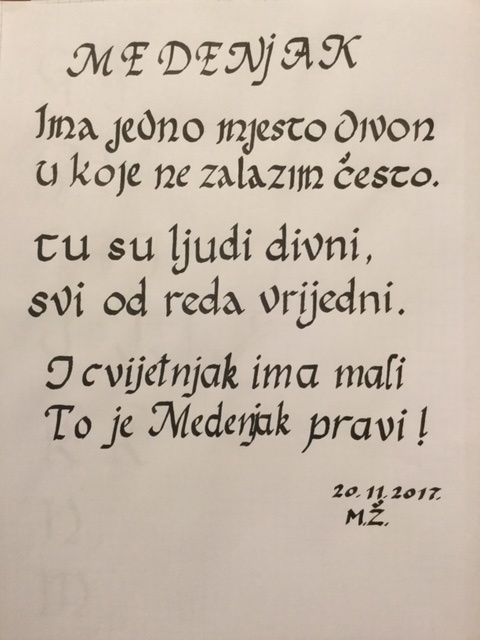 MEDENjAK
Ima jedno mjesto divon
u koje ne zalazim često.
tu su ljudi divni,
svi od reda vrijedni.
I cvijetnjak ima mali
To je Medenjak pravi!
20.11.2017.
M.Ž.